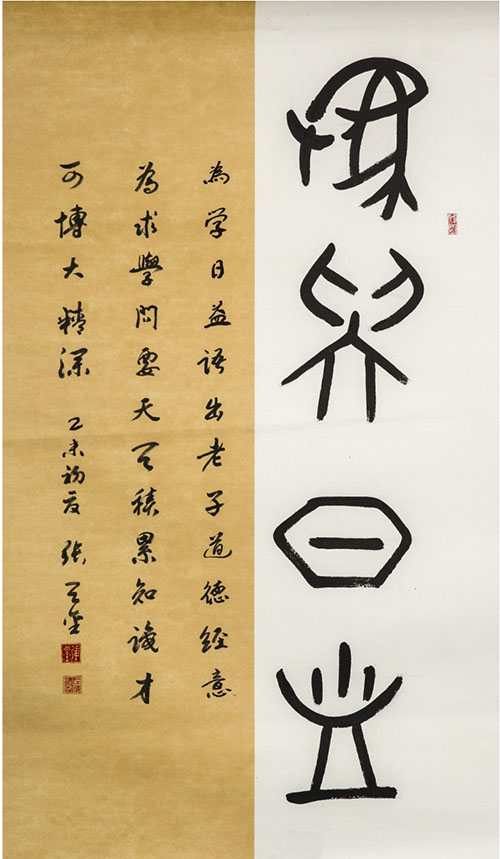 為學日益
為学日益語出老子道德經意
為求學問要天天積累知識才
可博大精深 乙未初夏 張天